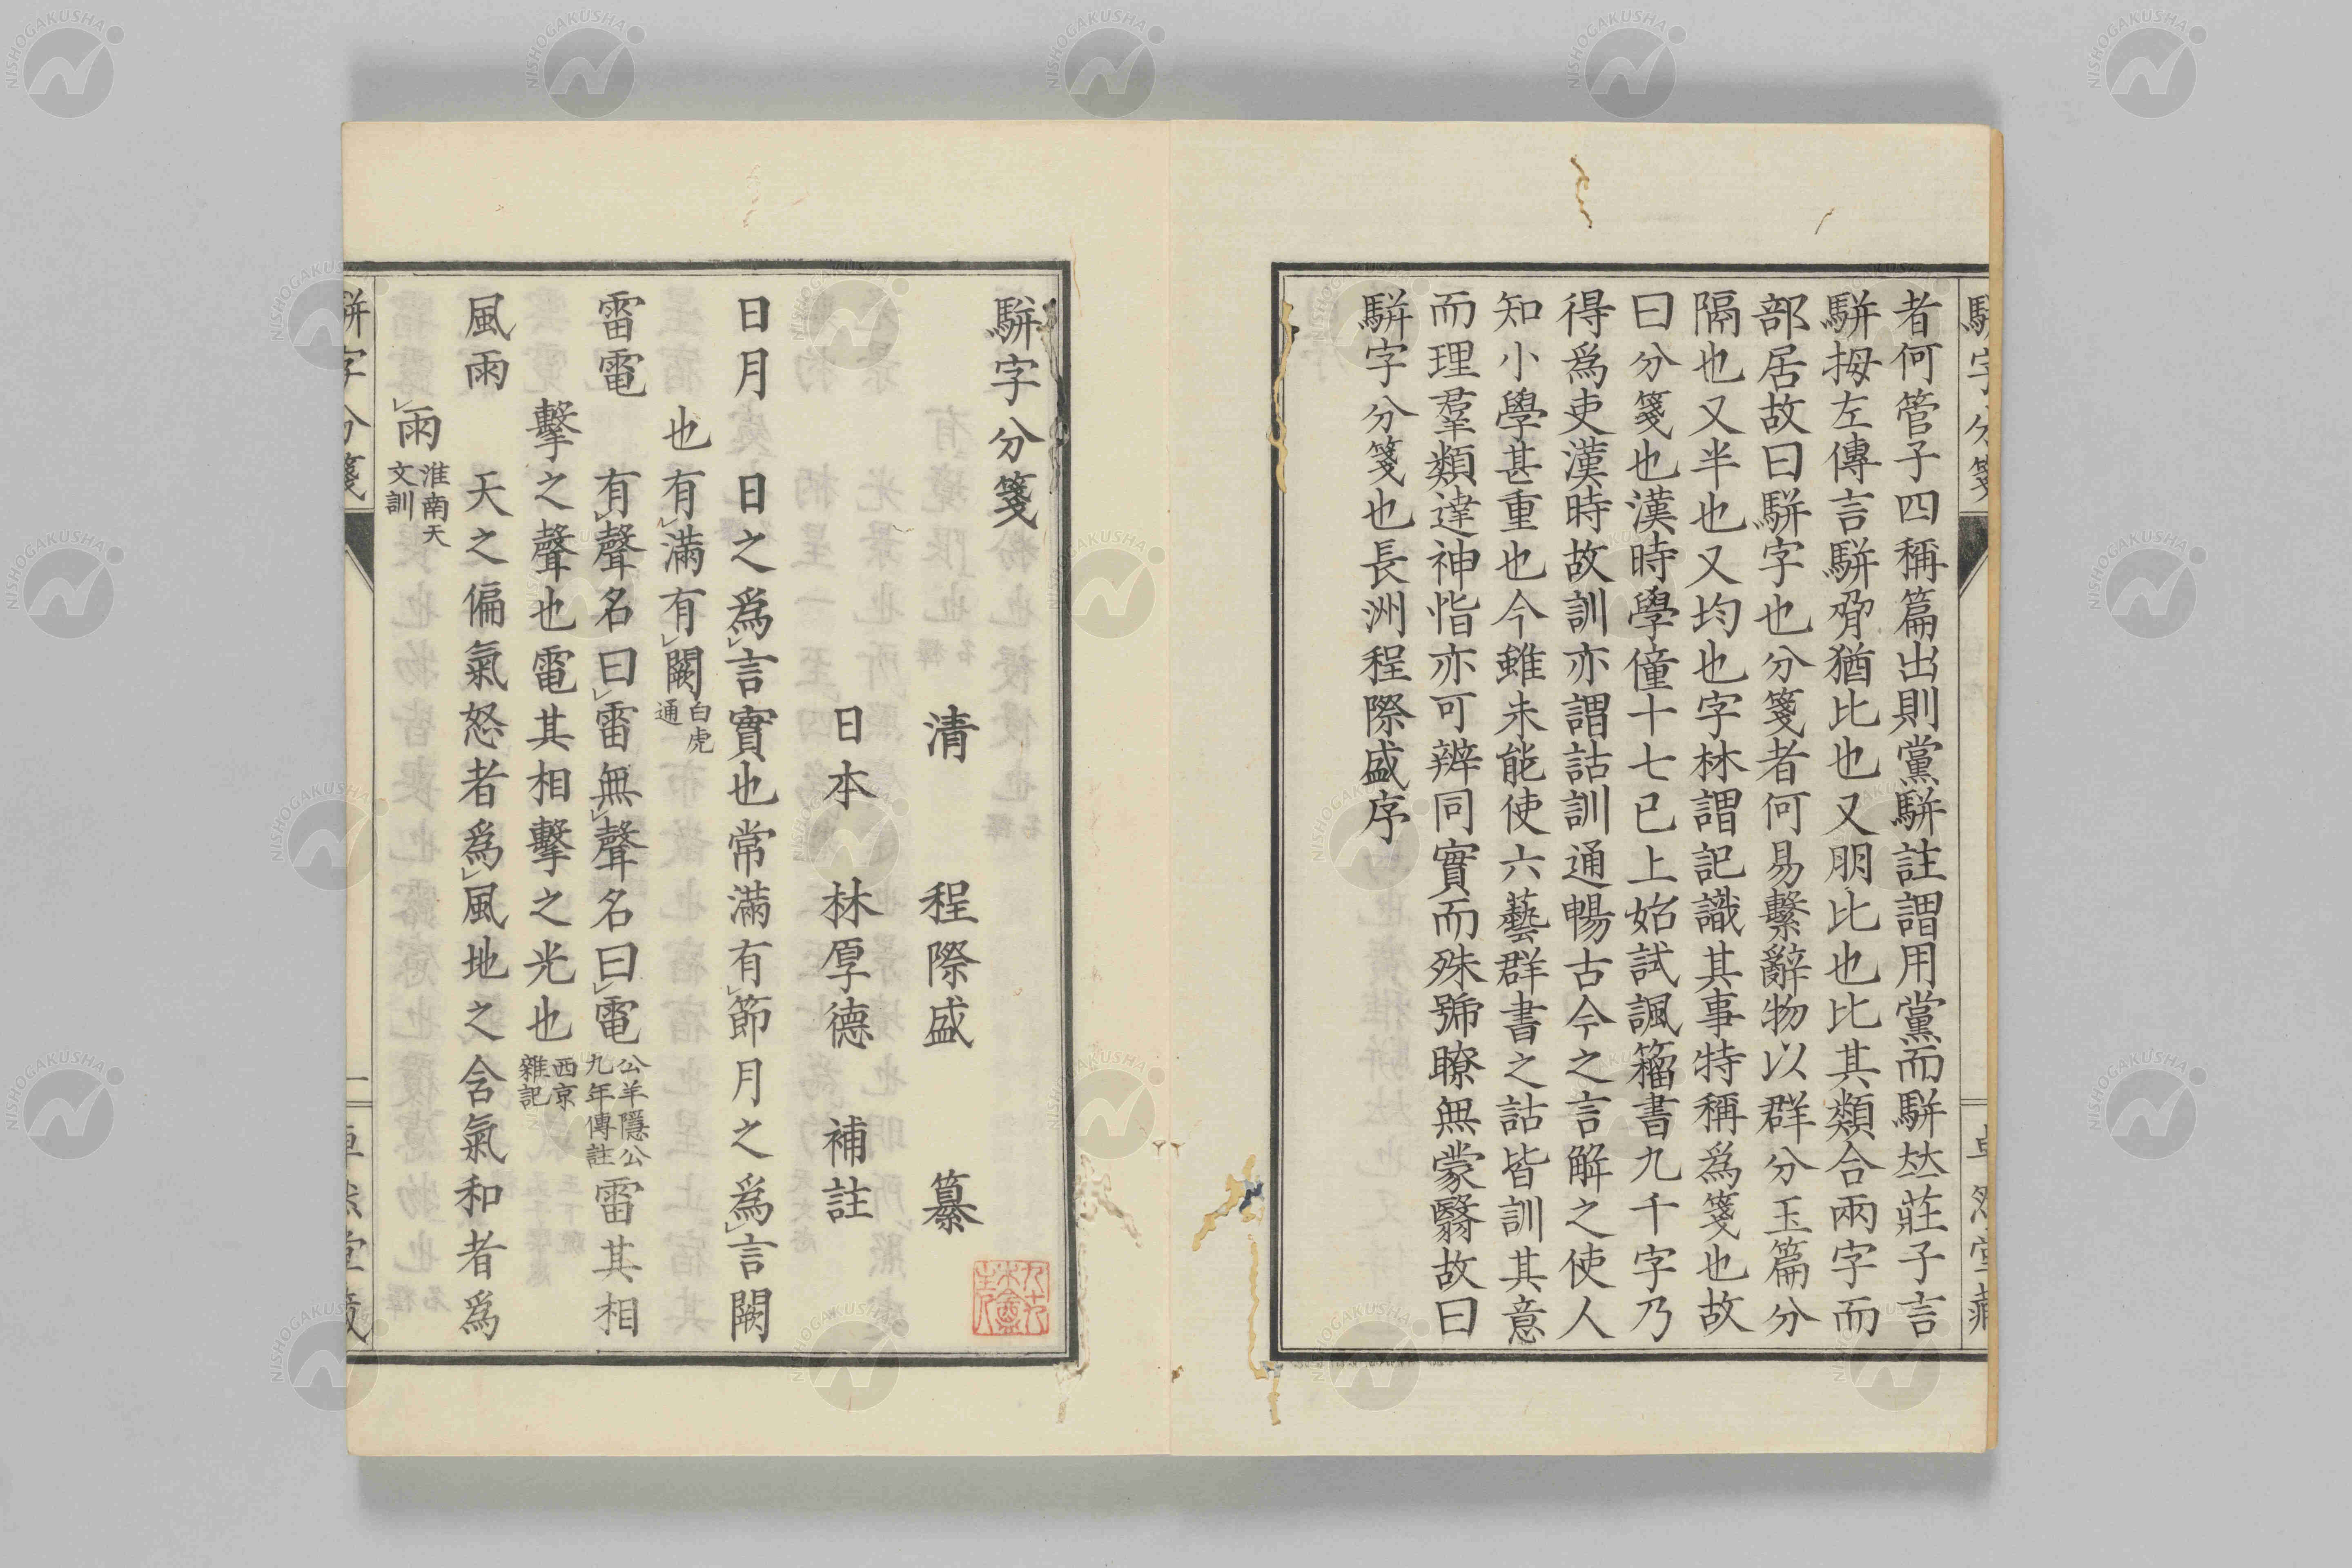 者何管子四稱篇出則黨駢註謂用黨而駢竝莊子言
駢拇左傳言駢脅猶比也又朋比也比其類合兩字而
部居故曰駢字也分箋者何易繫辭物以群分玉篇分
隔也又半也又均也字林謂記識其事特稱爲箋也故
曰分箋也漢時學僮十七已上始試諷籀書九千字乃
得爲吏漢時故訓亦謂詁訓通暢古今之言解之使人
知小學甚重也今雖未能使六藝群書之詁皆訓其意
而理羣類達神恉亦可辨同實而殊號瞭無蒙翳故曰
駢字分箋也長洲程際盛序
駢字分箋
清 程際盛 纂
日本 林厚德 補註
日月 日之爲言實也常滿有節月之爲言闕
也有滿有闕白虎通
雷電 有聲名曰雷無聲名曰電公羊隱公九年傳註雷其相
擊之聲也電其相擊之光也西京雜記
風雨 天之偏氣怒者爲風地之含氣和者爲
雨淮南天文訓
駢字分箋
NISHOGAKUSHA